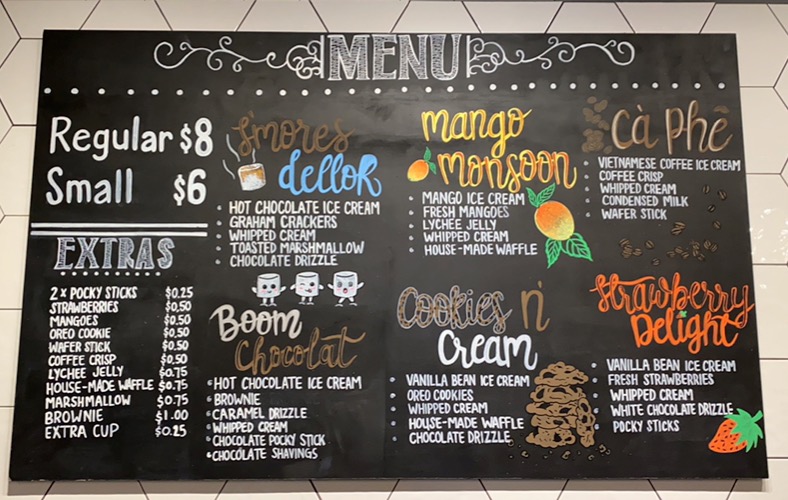 MENU
Regular $8
Small $6
EXTRAS
2 x POCKY STICKS $0.25
STRAWBERRIES $0.50
MANGOES $0.50
OREO COOKIE $0.50
WAFER STICK $0.50
COFFEE CRISP $0.50
LYCHEE JELLY $0.75
HOUSE-MADE WAFFLE $0.75
MARSHMALLOW $0.75
BROWNIE $1.00
EXTRA CUP $0.25
S'mores
dellok
HOT CHOCOLATE ICE CREAM
GRAHAM CRACKERS
WHIPPED CREAM
TOASTED MARSHMALLOW
CHOCOLATE DRIZZLE
Boom
Chocolat
HOT CHOCOLATE ICE CREAM
BROWNIE
CARAMEL DRIZZLE
WHIPPED CREAM
CHOCOLATE POCKY STICK
CHOCOLATE SHAVINGS
mango
monsoon
MANGO ICE CREAM
FRESH MANGOES
LYCHEE JELLY
WHIPPED CREAM
HOUSE-MADE WAFFLE
Cookies n'
Cream
VANILLA BEAN ICE CREAM
OREO COOKIES
WHIPPED CREAM
HOUSE-MADE WAFFLE
CHOCOLATE DRIZZLE
Cà Phê
VIETNAMESE COFFEE ICE CREAM
COFFEE CRISP
WHIPPED CREAM
CONDENSED MILK
WAFER STICK
Strawberry
Delight
VANILLA BEAN ICE CREAM
FRESH STRAWBERRIES
WHIPPED CREAM
WHITE CHOCOLATE DRIZZLE
POCKY STICKS